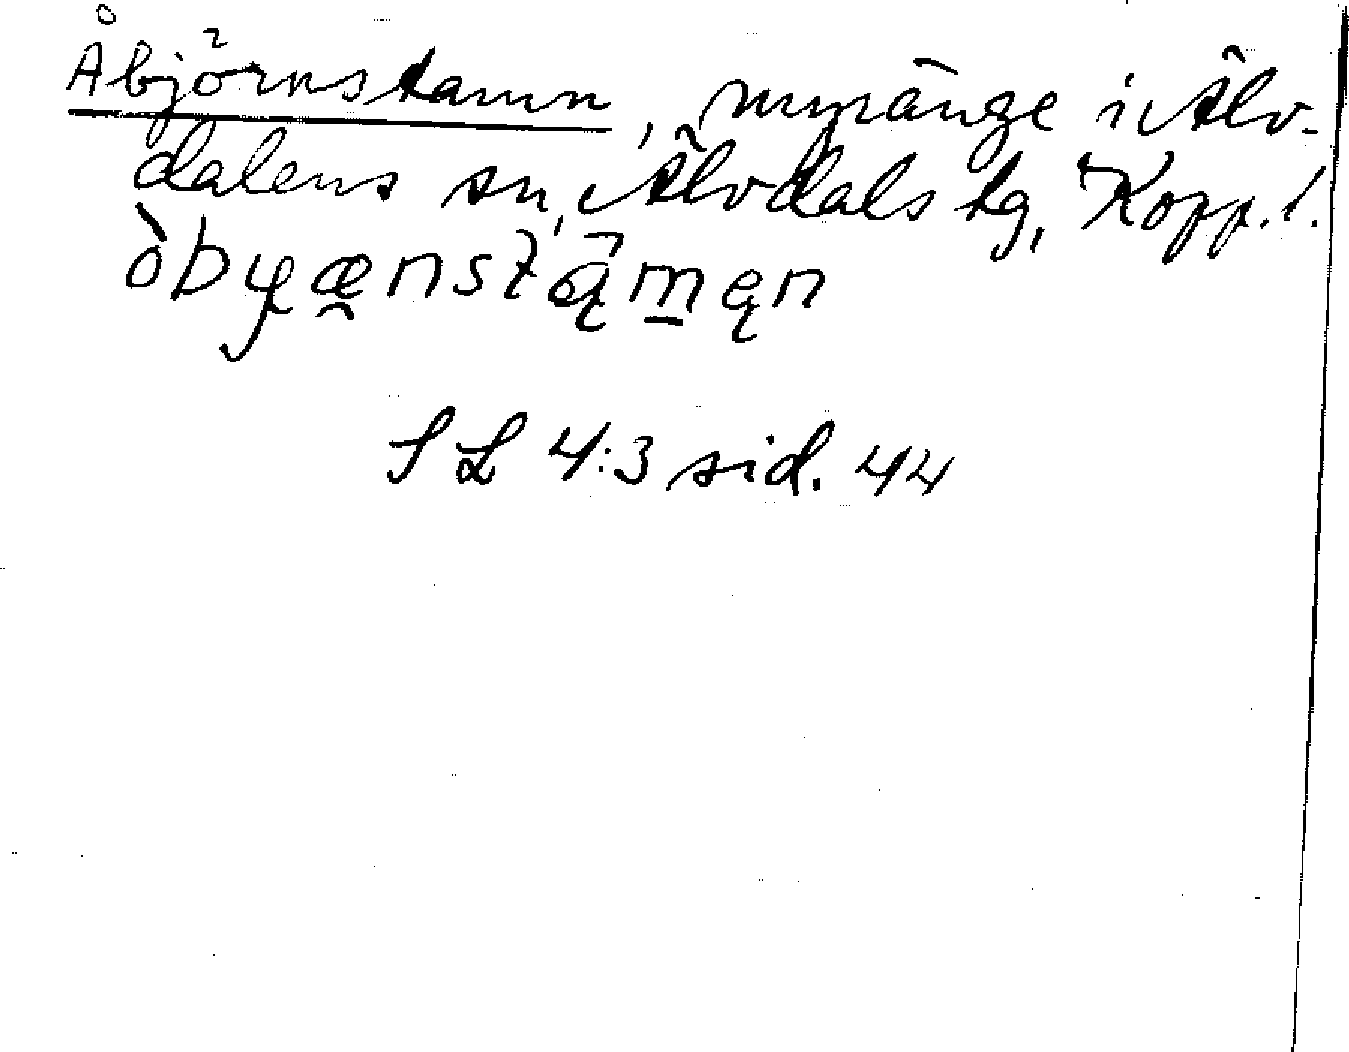 Åbjörnstamn, myränge i Älv-
dalens sn, Älvdals tg, Kopp. l.
òbyæ̯nstą̄m̲ęn
SL 4:3 sid. 44